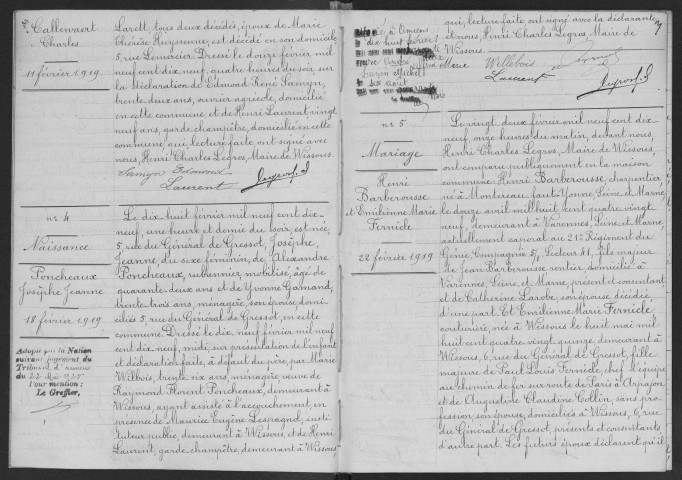 Callewaert
Charles
11 février 1919
Larett, tous deux décédés, époux de Marie
Thérèse Huyssenne, est décédé en son domicile
5, rue Lemercier. Dressé le douze février mil
neuf cent dix neuf, quatre heures du soir, sur
la déclaration de Edmond René Samyn,
trente deux ans, ouvrier agricole, domicilié
en cette commune, et de Henri Laurent vingt
neuf ans, garde champêtre, domicilié en cette
commune, qui, lecture faite, ont signé avec
nous, Henri Charles Legros, Maire de Wissous.
Samyn Edmond
Laurent
n° 4
Naissance
Poncheaux
Josèphe Jeanne
18 février 1919
Adopté par la Nation
suivant jugement du
Tribunal d'
du 22
Pour mention :
Le Greffier,
Le dix huit février mil neuf cent dix
neuf, une heure et demie du soir, est née
5, rue du Général de Gressot, Josèphe,
Jeanne, du sexe féminin, de Alexandre
Poncheaux, rubannier, mobilisé, âgé de
quarante deux ans et de Yvonne Gamand,
trente trois ans, ménagère, son épouse, domi-
ciliés 5, rue du Général de Gressot, en cette
commune. Dressé le dix neuf février mil neuf
cent dix neuf, midi, sur présentation de l'enfant
et déclaration faite, à défaut du père, par Marie
Willbois, trente six ans, ménagère veuve de
Raymond Florent Poncheaux, demeurant à
Wissous, ayant assisté à l'accouchement, en
présence de Maurice Eugène Lespagnol, insti-
tuteur public, demeurant à Wissous, et de Henri
Laurent, garde champêtre, demeurant à Wissous
qui, lecture faite, ont signé avec la déclarante
et nous, Henri Charles Legros Maire de
Wissous.
Marie Willebois
Laurent
n° 5
Mariage
Henri
Barberousse
et Emilienne Marie
Fernicle
22 février 1919
Le vingt deux février mil neuf cent dix
neuf, onze heures du matin, devant nous,
Henri Charles Legros, Maire de Wissous,
ont comparu publiquement en la maison
commune Henri Barberousse, charpentier
né à Montereau faut Yonne, Seine et Marne,
le douze avril mil huit cent quatre vingt
neuf, demeurant à Varennes, Seine et Marne,
actuellement caporal au 21e Régiment du
Génie, Compagnie 5/1, Secteur 41, fils majeur
de Jean Barberousse rentier, domicilié à
Varennes, Seine et Marne, présent et consentant
et de Catherine Larobe, son épouse décédée,
d'une part. Et Emilienne Marie Fernicle
couturière, née à Wissous le huit mai mil
huit cent quatre vingt quinze, demeurant à
Wissous, 6, rue du Général de Gressot, fille
majeure de Paul Louis Fernicle, chef d'équipe
au chemin de fer sur route de Paris à Arpajon
et de Augustine Claudine Collin, sans pro-
fession, son épouse, domiciliés à Wissous, 6, rue
du Général de Gressot, présents et consentants,
d'autre part. Les futurs époux déclarent qu'il